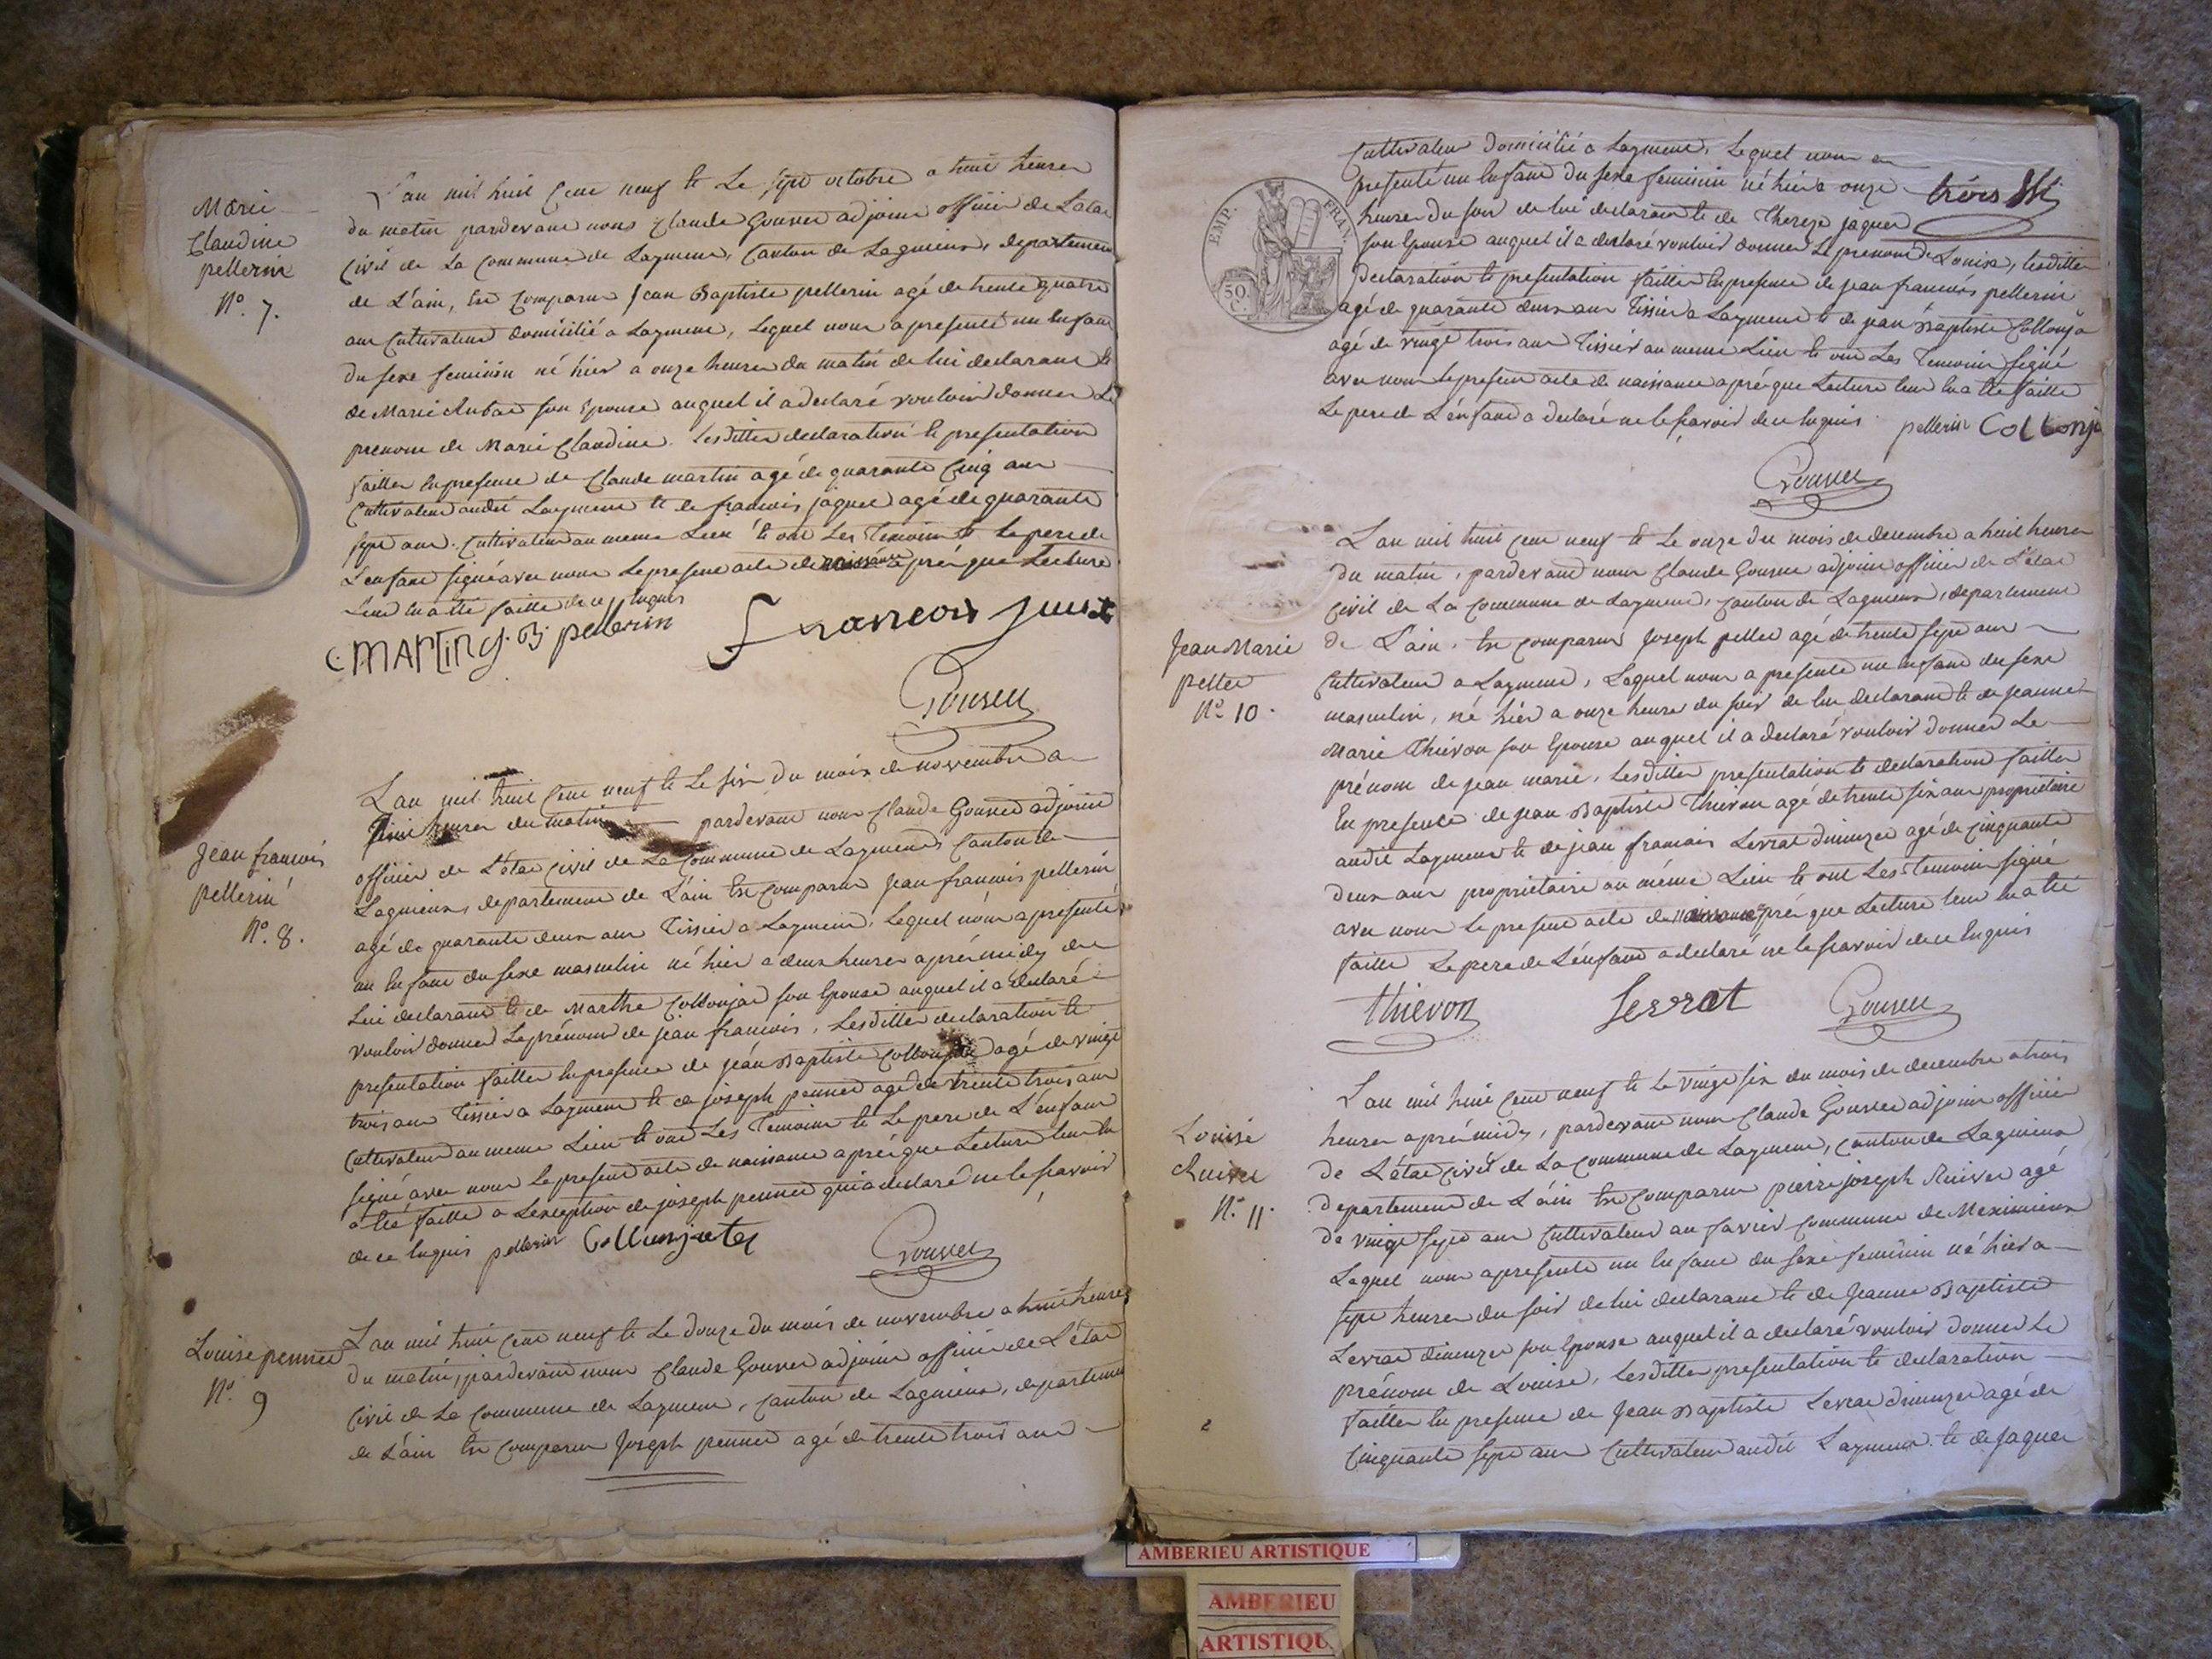 Marie
Claudine
pellerin
N°. 7.
L'an mil huit Cent neuf & Le sept octobre a huit heures
du matin pardevant nous Claude Gouvet adjoint officier de L'etat
Civil de La Commune de Laymens, Canton de Lagnieux, departement
de L'ain, Est Comparu Jean Baptiste pellerin agé de trente quatre
ans Cultivateur domicilié a Laymens, Lequel nous a presenté un Enfant
du sexe feminin né hier a onze heures du matin de lui declarant &
de Marie son Epouse auquel il a declaré vouloir donner Le
prenom de Marie Claudine. Lesdittes declaration & presentation
faittes En presence de Claude martin agé de quarante Cinq ans
Cultivateur audit Laymens & de francois jaquet agé de quarante
sept ans. Cultivateur au meme Lieu & ont Les Temoins & Le pere de
L'enfant signé avec nous Le present acte de naissance aprés que Lecture
Leur En a été faitte de ce Enquis
C MARTIN J. B. pellerin francois
Gouvet
Jean francois
pellerin
N°. 8.
L'an mil huit Cent neuf & Le six du mois de novembre a
huit heures du matin pardevant nous Claude Gouvet adjoint
officier de L'état Civil de La Commune de Laymens Canton de
Lagnieux, departement de L'ain Est Comparu Jean francois pellerin
agé de quarante deux ans Tissier a Laymens, Lequel nous a presenté
un Enfant du sexe masculin né hier a deux heures aprés midy de
Lui declarant & de Marthe Collonjat son Epouse auquel il a declaré
vouloir donner Le prénom de jean francois, Lesdittes declaration &
presentation faittes En presence de jean Baptiste Collonjat agé de vingt
trois ans Tissier a Laymens & de joseph pennet agé de trente trois ans
Cultivateur au meme Lieu & ont Les Temoins & Le pere de L'enfant
signé avec nous Le present acte de naissance aprés que Lecture leur En
a été faitte a L'exception de joseph pennet qui a declaré ne le scavoir
de ce Enquis pellerin
Gouvet
Louise pennet
N°. 9
L'an mil huit Cent neuf & Le douze du mois de novembre a huit heures
du matin, pardevant nous Claude Gouvet adjoint officier de L'état
Civil de La Commune de Laymens, Canton de Lagnieux, departement
de L'ain Est Comparu Joseph pennet agé de trente trois ans
Cultivateur domicilié a Laymens, Lequel nous a
presenté un Enfant du sexe feminin né hier a onze
heures du soir de lui declarant & de Thereze jaquet
son Epouse auquel il a declaré vouloir donner Le prenom de Louise, lesdittes
declaration & presentation faittes En presence de jean francois pellerin
agé de quarante deux ans Tissier a Laymens & de jean Baptiste Collonja
agé de vingt trois ans Tissier au meme Lieu & ont Les Temoins signé
avec nous Le present acte de naissance aprés que Lecture leur En a été faitte
Le pere de L'enfant a declaré ne le scavoir de ce Enquis pellerin Collonja
Gouvet
trois
EMP. FRAN.
50.
C.
Jean Marie
pellet
N°. 10.
L'an mil huit Cent neuf & Le onze du mois de decembre a huit heures
du matin, pardevant nous Claude Gouvet adjoint officier de L'état
Civil de La Commune de Laymens, Canton de Lagnieux, departement
de L'ain. Est Comparu Joseph pellet agé de trente sept ans
Cultivateur a Laymens, Lequel nous a presenté un Enfant du sexe
masculin, né hier a onze heure du soir de lui declarant & de jeanne
Marie Thievon son Epouse auquel il a declaré vouloir donner Le
prénom de jean marie, Lesdittes presentation & declaration faittes
En presence de jean Baptiste Thievon agé de trente six ans proprietaire
audit Laymens & de jean francois Levrat agé de cinquante
deux ans proprietaire au méme Lieu & ont Les Temoins signé
avec nous Le present acte de naissance aprés que Lecture leur En a été
faitte Le pere de L'enfant a declaré ne le scavoir de ce Enquis
Thievon Levrat Gouvet
Louise
N°. 11.
L'an mil huit Cent neuf & Le vingt six du mois de decembre a trois
heures aprés midy, pardevant nous Claude Gouvet adjoint officier
de L'état Civil de La Commune de Laymens, Canton de Lagnieux
departement de L'ain Est Comparu pierre joseph agé
de vingt sept ans Cultivateur au Commune de Meximieux
Lequel nous a presenté un Enfant du sexe feminin né hier a
sept heures du soir de lui declarant & de Jeanne Baptiste
Levrat son Epouse auquel il a declaré vouloir donner Le
prénom de Louise, Lesdittes presentation & declaration
faittes En presence de Jean Baptiste Levrat agé de
Cinquante sept ans Cultivateur audit Laymens & de Jaques
AMBERIEU ARTISTIQUE
AMBERIEU
ARTISTIQU